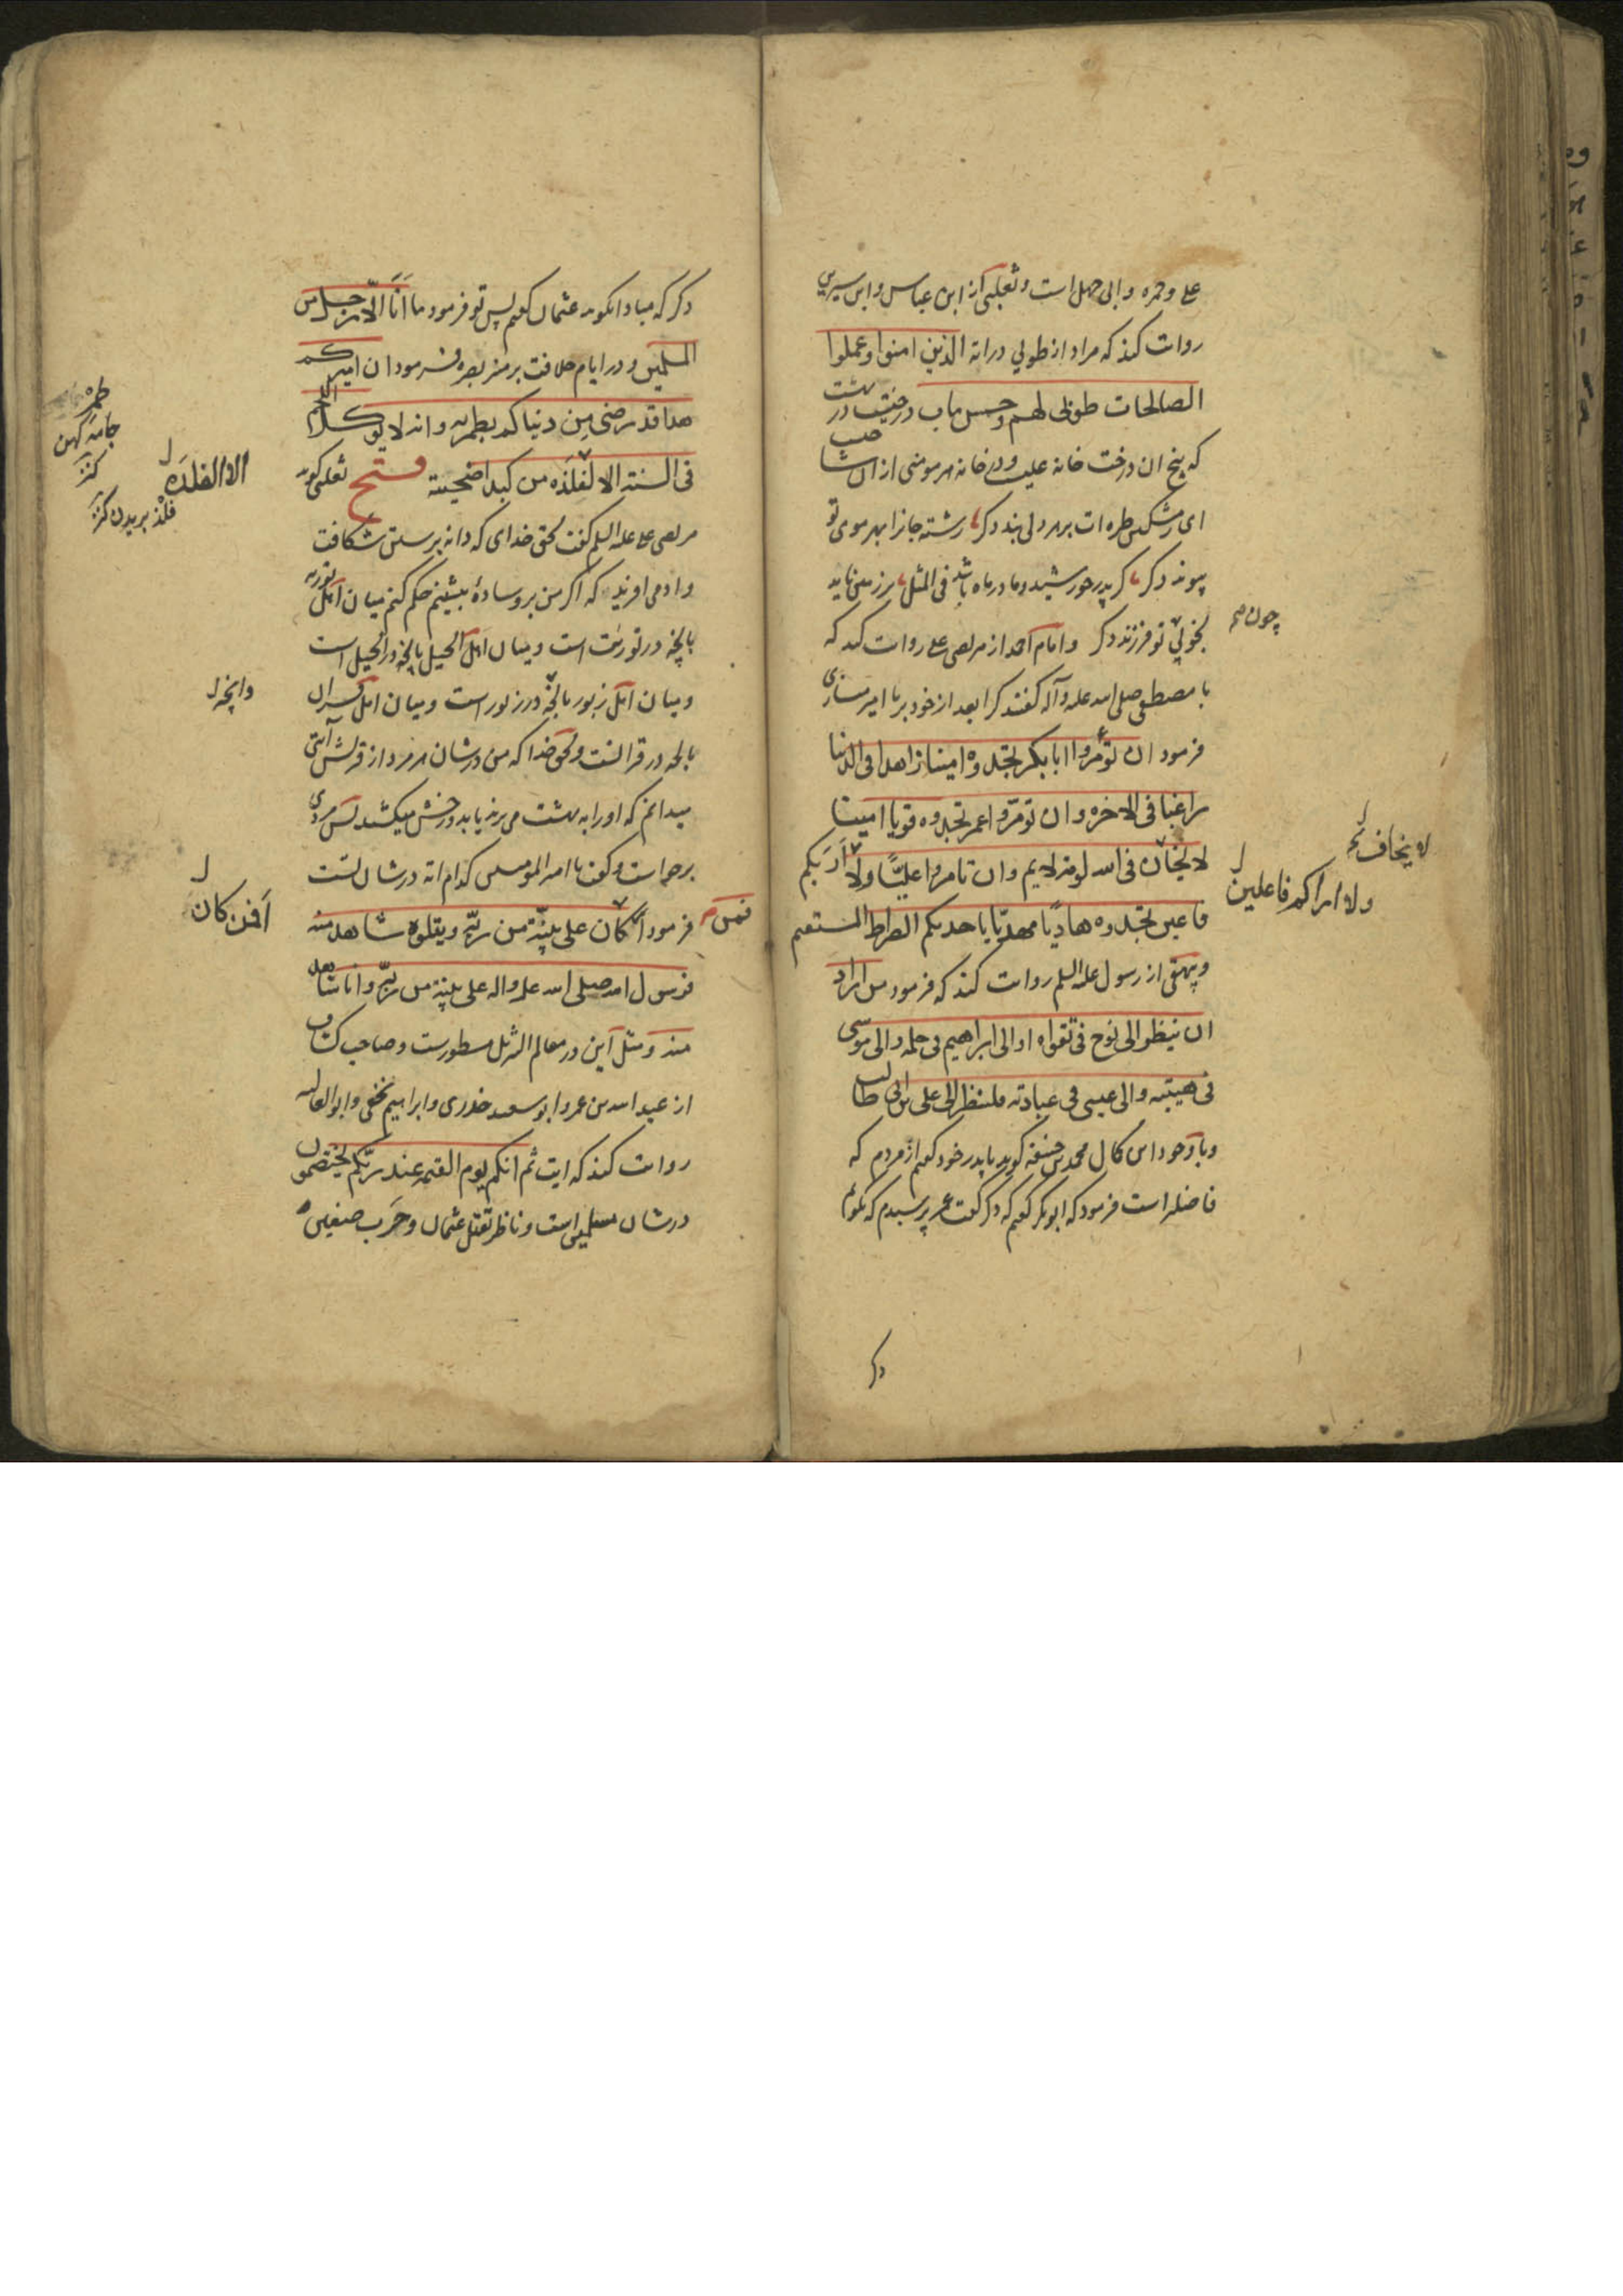 علی و حمزه و ابی جهل است و ثعلبی از ابن عباس و ابن سیرین
روایت کند که مراد از طوبی در آیه الذین امنوا و عملوا
الصالحات طوبی لهم و حسن مآب درختیست در بهشت
که بیخ ان درخت خانه علیست و در خانه هر مومنی از ان شاخیست
ای ز مشکین طره ات بر هر دلی بند دگر رشته جانرا بهر موی تو
پیوند دگر گر پدر خورشید و مادر ماه باشد فی المثل بر زمین ناید
بخوبی تو فرزند دگر و امام احمد از مرتضی علی روایت کند که
چون صح
با مصطفی صلی الله علیه و آله گفتند کرا بعد از خود بر ما امیر میسازی
فرمود ان تؤمروا ابابکر تجدوه امینا زاهدا فی الدنیا
راغبا فی الاخرة و ان تؤمروا عمر تجدوه قویا امینا
لا یخاف فی الله لومة لایم و ان تامروا علیّا ولا اریکم
لا یخاف نخه
ولا اراکم فاعلین
فاعلین تجدوه هادیًا مهدیّا یاخذ بکم الصراط المستقیم
و بیهقی از رسول علیه السلم روایت کند که فرمود من اراد
ان ینظر الی نوح فی تقواه او الی ابراهیم فی حلمه و الی موسی
فی هیبته و الی عیسی فی عبادته فلینظر الی علی بن ابی طالب
و با وجود این کمال محمد بن حنفیه گوید با پدر خود گفتم از مردم که
فاضلتر است فرمود که ابوبکر گفتم که دگر گفت عمر پرسیدم که بگوئیم
دگر
دگر که مبادا بگوید عثمان گفتم پس تو فرمود ما انا الّا رجل من
المسلمین و در ایام خلافت بر منبر بصره فرمود ان امیرکم
هذا قد رضی من دنیاکم بطمریه و انه لا یوکل اللحم
طمر جامه کهن کنز
فی السنة الا لفلذه من کبد اضحیته فتح ثعلبی گوید
الا الفلذه
فلذ بریدن کنز
مرتضی علی علیه السلم گفت بحق خدای که دانه برستن شکافت
و ادمی افرید که اگر من بر وساده بنشینم حکم کنم میان اهل توریة
بانچه در توریت است و میان اهل انجیل بانچه در انجیل است
و میان اهل زبور بانچه در زبور است و میان اهل قران
وانچه ل
بانچه در قرانست و بحق خدا که من در شان هر مرد از قریش آیتی
میدانم که او را به بهشت می برند یا بدوزخش میکشند پس مردی
برخاست و گفت یا امیر المومنین کدام ایه در شان تست
فرمود افمن کان علی بینة من ربّه و یتلوه شاهد منه
فمن
افمن کان
فرسول الله صلی الله علیه و اله علی بینة من ربّه و انا شاهد
منه و مثل این در معالم التنزیل مسطورست و صاحب کشاف
از عبد الله بن عمر و ابو سعید خدری و ابراهیم نخعی و ابو العالیه
روایت کند که ایت ثم انکم یوم القیمة عند ربّکم تختصمون
در شان مسلمین است و ناظر بقتل عثمان و حرب صفین